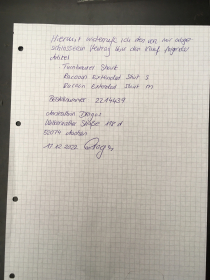 Hiermit widerrufe ich den von mir abge-
schlossenen Vertrag über den Kauf folgender
Artikel
Turnbeutel Shirt
Raccoon Extended Shirt S
Raccoon Extended Shirt M
Bestellnummer 2214439
52074 Aachen
17.02.2022